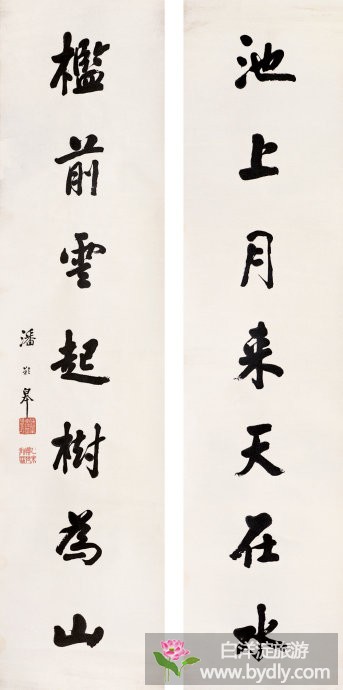 池上月来天在水
檻前雲起樹為山
潘龄皋
白洋淀旅游
www.bydly.com